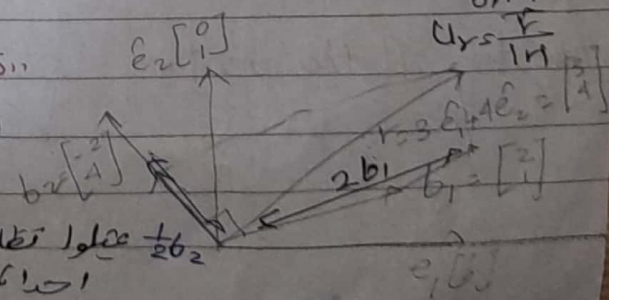 ê₂ [0 1]
u_r = r/|r|
r = 3ê₁ + 4ê₂ = [3 4]
b₂ = [-2 4]
2b₁
b₁ = [2 1]
½b₂
e₁